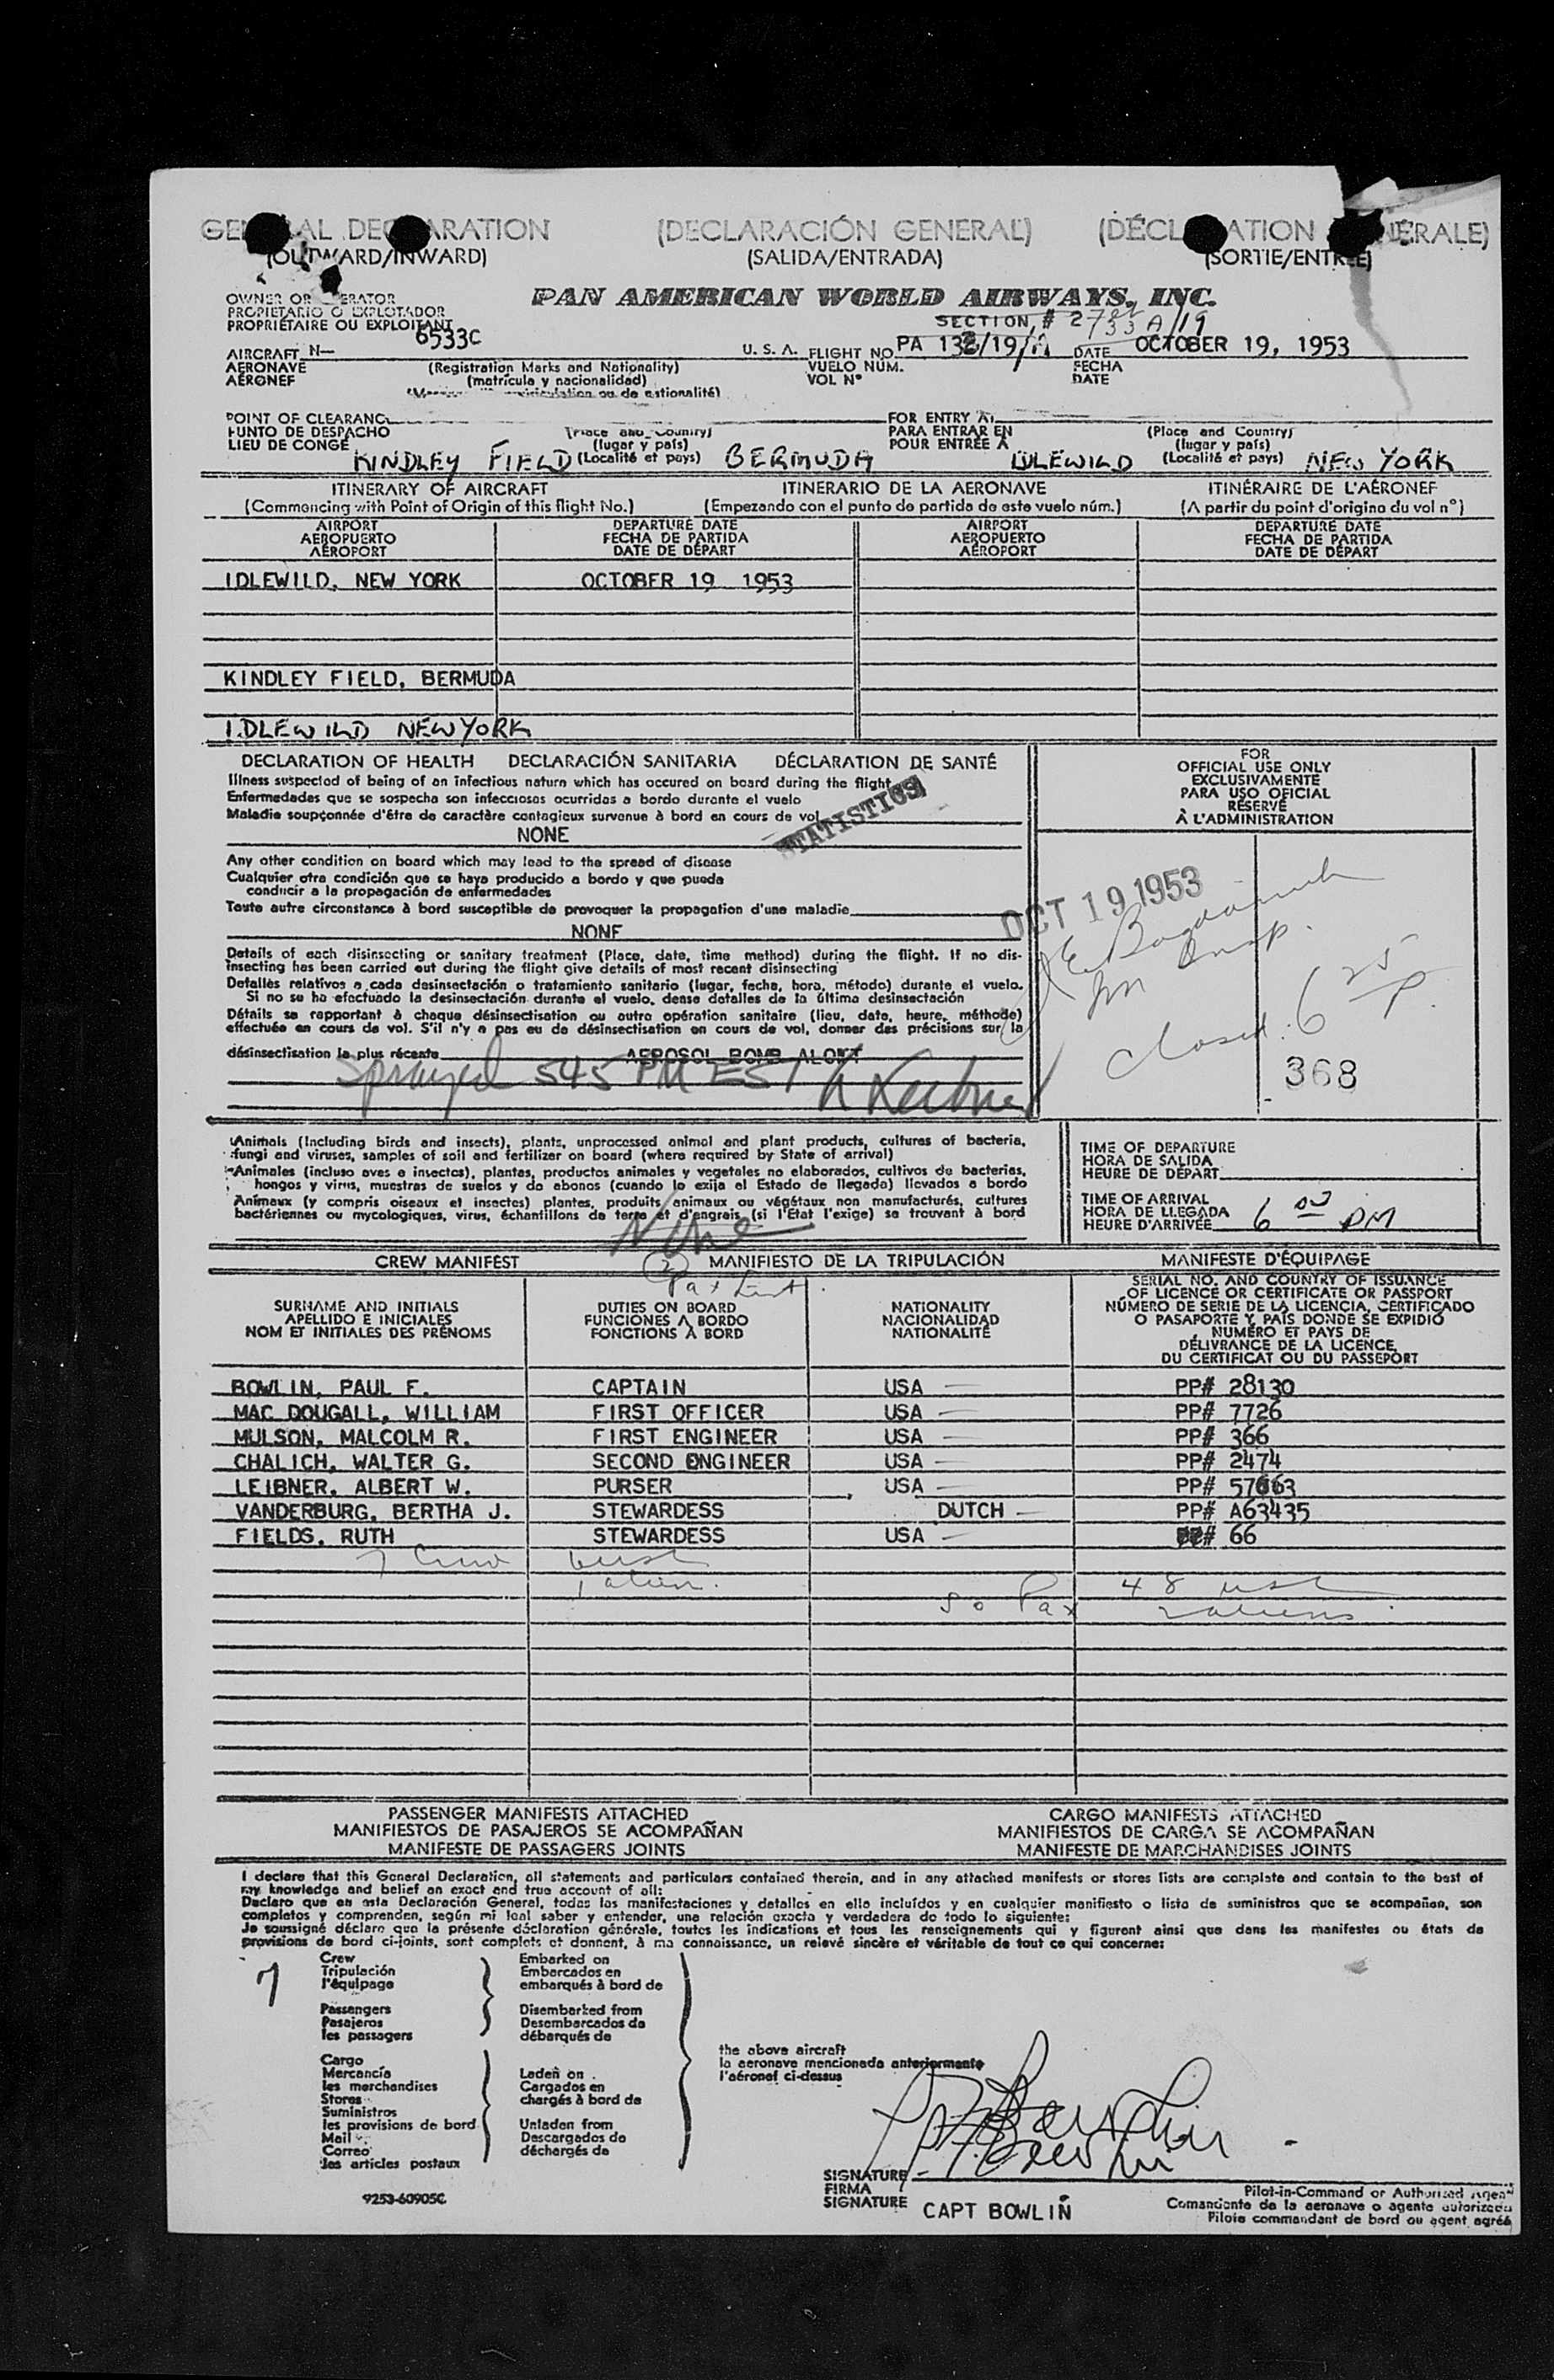 GENERAL DECLARATION (DECLARACIÓN GENERAL) (DÉCLARATION GÉNÉRALE)
(OUTWARD/INWARD) (SALIDA/ENTRADA) (SORTIE/ENTRÉE)
OWNER OR OPERATOR
PROPIETARIO O EXPLOTADOR
PROPRIÉTAIRE OU EXPLOITANT
PAN AMERICAN WORLD AIRWAYS, INC.
SECTION # 2
6533C
AIRCRAFT N— U. S. A. FLIGHT NO. PA 133/19/A DATE OCTOBER 19, 1953
AERONAVE (Registration Marks and Nationality) VUELO NÚM. FECHA
AÉRONEF (matrícula y nacionalidad) VOL N° DATE
POINT OF CLEARANCE FOR ENTRY AT
PUNTO DE DESPACHO (Place and Country) PARA ENTRAR EN (Place and Country)
LIEU DE CONGÉ (lugar y país) POUR ENTRÉE À (lugar y país)
KINDLEY FIELD (Localité et pays) BERMUDA IDLEWILD (Localité et pays) NEW YORK
ITINERARY OF AIRCRAFT ITINERARIO DE LA AERONAVE ITINÉRAIRE DE L'AÉRONEF
(Commencing with Point of Origin of this flight No.) (Empezando con el punto de partida de este vuelo núm.) (A partir du point d'origine du vol n°)
AIRPORT DEPARTURE DATE AIRPORT DEPARTURE DATE
AEROPUERTO FECHA DE PARTIDA AEROPUERTO FECHA DE PARTIDA
AÉROPORT DATE DE DÉPART AÉROPORT DATE DE DÉPART
IDLEWILD, NEW YORK OCTOBER 19 1953
KINDLEY FIELD, BERMUDA
IDLEWILD NEW YORK
DECLARATION OF HEALTH DECLARACIÓN SANITARIA DÉCLARATION DE SANTÉ
Illness suspected of being of an infectious nature which has occured on board during the flight
Enfermedades que se sospecha son infecciosas ocurridas a bordo durante el vuelo
Maladie soupçonnée d'être de caractère contagieux survenue à bord en cours de vol
NONE
STATISTICS
Any other condition on board which may lead to the spread of disease
Cualquier otra condición que se haya producido a bordo y que pueda
conducir a la propagación de enfermedades
Toute autre circonstance à bord susceptible de provoquer la propagation d'une maladie
NONE
Details of each disinsecting or sanitary treatment (Place, date, time method) during the flight. If no dis-
insecting has been carried out during the flight give details of most recent disinsecting
Detalles relativos a cada desinsectación o tratamiento sanitario (lugar, fecha, hora, método) durante el vuelo.
Si no se ha efectuado la desinsectación durante el vuelo, dense detalles de la última desinsectación
Détails se rapportant à chaque désinsectisation ou autre opération sanitaire (lieu, date, heure, méthode)
effectuée en cours de vol. S'il n'y a pas eu de désinsectisation en cours de vol, donner des précisions sur la
désinsectisation la plus récente AEROSOL BOMB ALOFT
Sprayed 545 PM EST
FOR
OFFICIAL USE ONLY
EXCLUSIVAMENTE
PARA USO OFICIAL
RÉSERVÉ
À L'ADMINISTRATION
OCT 19 1953
Insp.
Closed: 6 25 P.
368
Animals (Including birds and insects), plants, unprocessed animal and plant products, cultures of bacteria,
fungi and viruses, samples of soil and fertilizer on board (where required by State of arrival)
Animales (incluso aves e insectos), plantas, productos animales y vegetales no elaborados, cultivos de bacterias,
hongos y virus, muestras de suelos y de abonos (cuando lo exija el Estado de llegada) llevados a bordo
Animaux (y compris oiseaux et insectes) plantes, produits animaux ou végétaux non manufacturés, cultures
bactériennes ou mycologiques, virus, échantillons de terre et d'engrais (si l'État l'exige) se trouvant à bord
None
TIME OF DEPARTURE
HORA DE SALIDA
HEURE DE DÉPART
TIME OF ARRIVAL
HORA DE LLEGADA
HEURE D'ARRIVÉE 6 00 PM
CREW MANIFEST MANIFIESTO DE LA TRIPULACIÓN MANIFESTE D'ÉQUIPAGE
2 Pax List
SURNAME AND INITIALS
APELLIDO E INICIALES
NOM ET INITIALES DES PRÉNOMS
DUTIES ON BOARD
FUNCIONES A BORDO
FONCTIONS À BORD
NATIONALITY
NACIONALIDAD
NATIONALITÉ
SERIAL NO. AND COUNTRY OF ISSUANCE
OF LICENCE OR CERTIFICATE OR PASSPORT
NÚMERO DE SERIE DE LA LICENCIA, CERTIFICADO
O PASAPORTE Y PAÍS DONDE SE EXPIDIÓ
NUMÉRO ET PAYS DE
DÉLIVRANCE DE LA LICENCE,
DU CERTIFICAT OU DU PASSEPORT
BOWLIN, PAUL F. CAPTAIN USA PP# 28130
MAC DOUGALL, WILLIAM FIRST OFFICER USA PP# 7726
MULSON, MALCOLM R. FIRST ENGINEER USA PP# 366
CHALICH, WALTER G. SECOND ENGINEER USA PP# 2474
LEIBNER, ALBERT W. PURSER USA PP# 57663
VANDERBURG, BERTHA J. STEWARDESS DUTCH PP# A63435
FIELDS, RUTH STEWARDESS USA PP# 66
7 Crew 6 usc
1 alien. 48 usc
50 Pax 2 aliens
PASSENGER MANIFESTS ATTACHED CARGO MANIFESTS ATTACHED
MANIFIESTOS DE PASAJEROS SE ACOMPAÑAN MANIFIESTOS DE CARGA SE ACOMPAÑAN
MANIFESTE DE PASSAGERS JOINTS MANIFESTE DE MARCHANDISES JOINTS
I declare that this General Declaration, all statements and particulars contained therein, and in any attached manifests or stores lists are complete and contain to the best of
my knowledge and belief an exact and true account of all:
Declaro que en esta Declaración General, todas las manifestaciones y detalles en ella incluídos y en cualquier manifiesto o lista de suministros que se acompañan, son
completos y comprenden, según mi leal saber y entender, una relación exacta y verdadera de todo lo siguiente:
Je soussigné déclare que la présente déclaration générale, toutes les indications et tous les renseignements qui y figurent ainsi que dans les manifestes ou états de
provisions de bord ci-joints, sont complets et donnent, à ma connaissance, un relevé sincère et véritable de tout ce qui concerne:
7
Crew
Tripulación
l'équipage
Passengers
Pasajeros
les passagers
Cargo
Mercancía
les marchandises
Stores
Suministros
les provisions de bord
Mail
Correo
les articles postaux
Embarked on
Embarcados en
embarqués à bord de
Disembarked from
Desembarcados de
débarqués de
Laden on
Cargados en
chargés à bord de
Unladen from
Descargados de
déchargés de
the above aircraft
la aeronave mencionada anteriormente
l'aéronef ci-dessus
SIGNATURE
FIRMA
SIGNATURE CAPT BOWLIN
Pilot-in-Command or Authorized Agent
Comandante de la aeronave o agente autorizado
Pilote commandant de bord ou agent agréé
9253-60905C